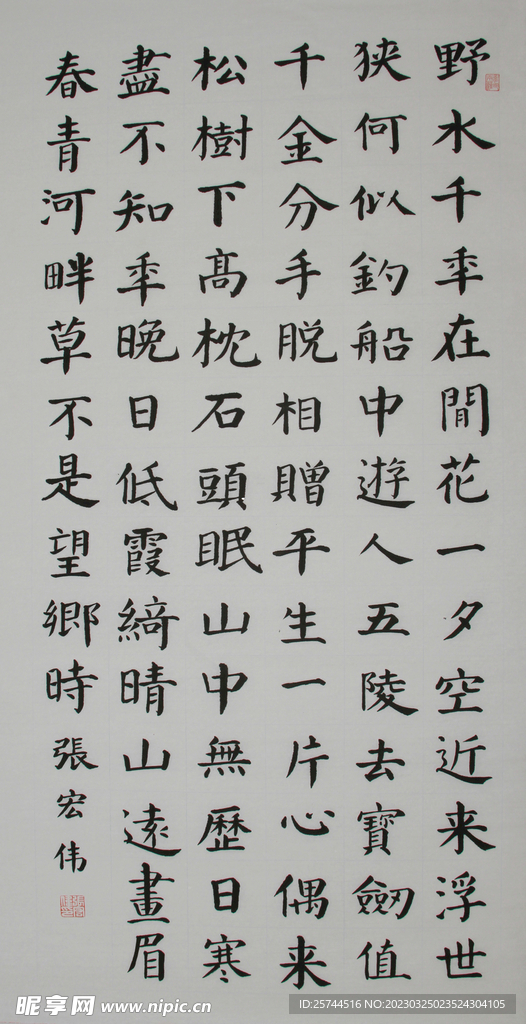 野水千秊在閒花一夕空近来浮世
狭何似釣船中遊人五陵去寶劒值
千金分手脱相贈平生一片心偶来
松樹下髙枕石頭眠山中無歷日寒
盡不知秊晚日低霞綺晴山遠畫眉
春青河畔草不是望鄉時
張宏伟
昵享网 www.nipic.cn
ID:25744516 NO:20230325023524304105